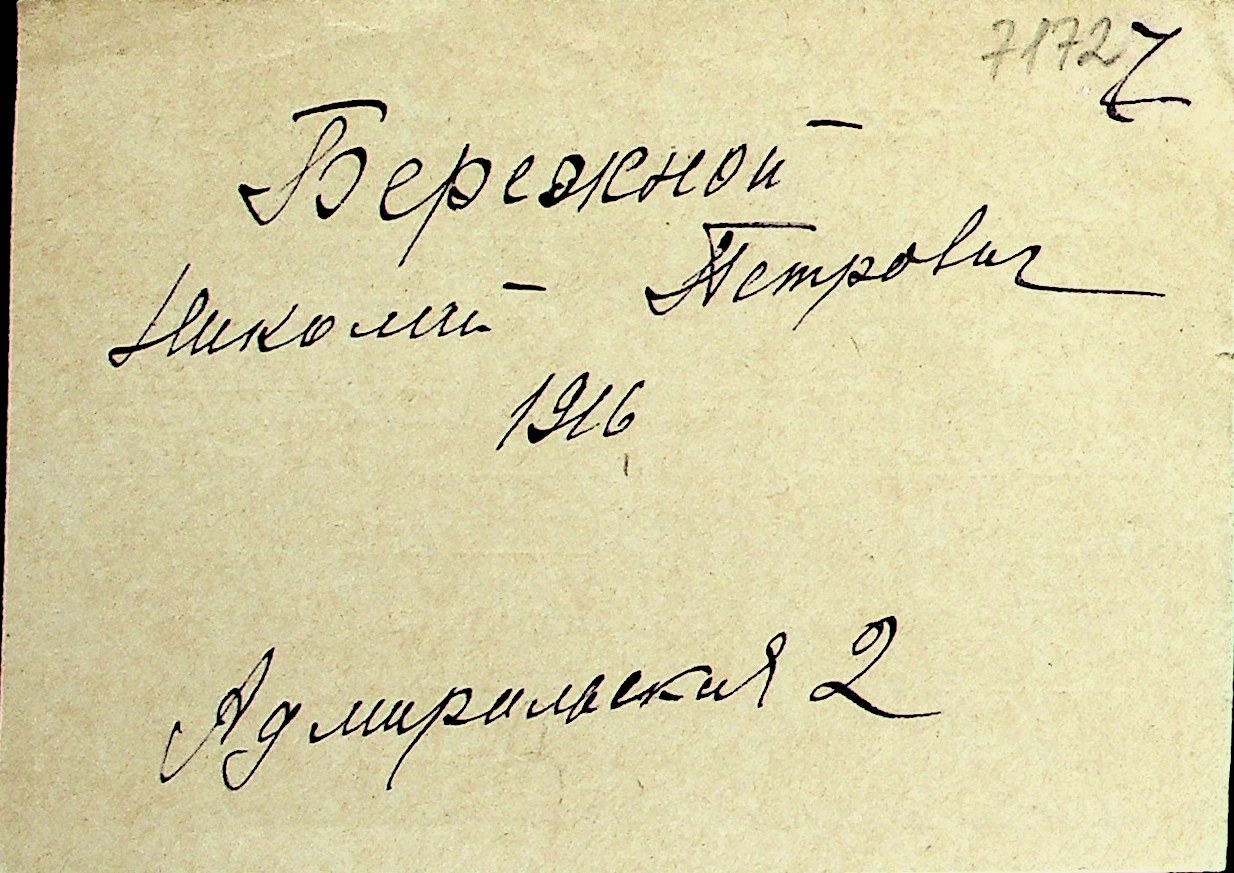 7172 7
Бережной
Николай Петрович
1916
Адмиральская 2